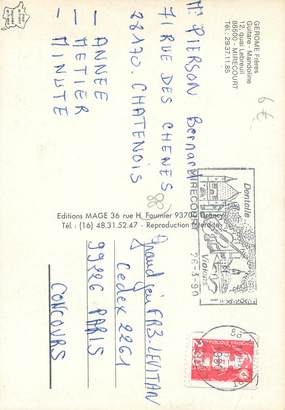 GEROME Frères
Guitare - Mandoline
12, quai Lebreuil
88500 - MIRECOURT
Tél : 29.37.11.85
6€
Mr PIERSON Bernard
71 RUE DES CHENES
28170. CHATENOIS
88
- ANNEE
- METIER
- MINUTE
Editions MAGE 36 rue H. Fournier 93700 Drancy
Tél. : (16) 48.31.52.47 - Reproduction interdite
MIRECOURT
26-3-90
Dentelle
Violons
Grand jeu FR3-LEVITAN
Cedex 2261
99226 PARIS
CONCOURS
2,30
88